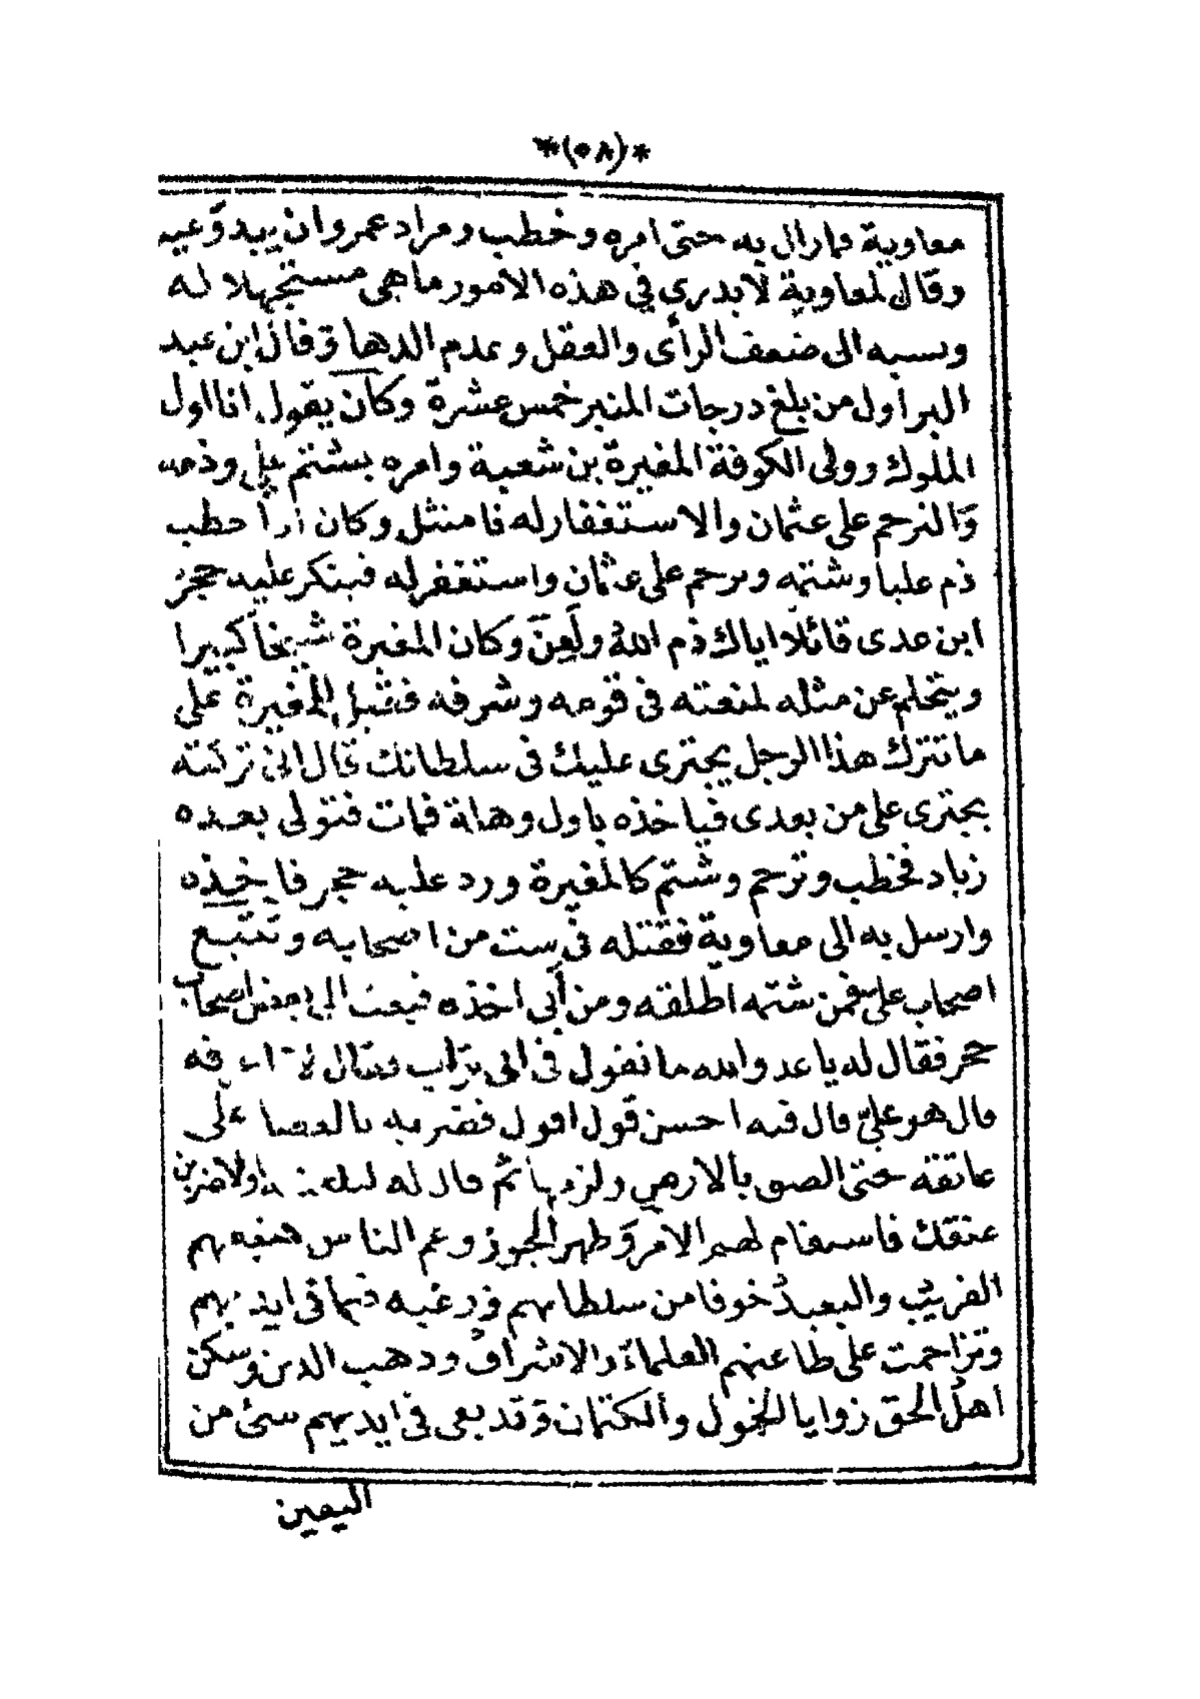 *(٥٨)*
معاوية فمازال به حتى امره وخطب ومراد عمروان يبدوعيه
وقال لمعاوية لايدري في هذه الامور ماهى مستجهلا له
ونسبه الى ضعف الرأى والعقل وعدم الدها وقال ابن عبد
البر اول من بلغ درجات المنبر خمس عشرة وكان يقول انا اول
الملوك وولى الكوفة المغيرة بن شعبة وامره بشتم على وذمه
والترحم على عثمان والاستغفار له فامتثل وكان اذا خطب
ذم عليا وشتمه وترحم على عثمان واستغفر له فينكر عليه حجر
ابن عدى قائلا اياك ذم الله ولعن وكان المغيرة شيخا كبيرا
ويتحلم عن مثله لمنعته فى قومه وشرفه فقيل للمغيرة على
ما تترك هذا الرجل يجترى عليك فى سلطانك قال انى تركته
يجترى على من بعدى فياخذه باول وهلة فمات فتولى بعده
زياد فخطب وترحم وشتم كالمغيرة ورد عليه حجر فاخذه
وارسل به الى معاوية فقتله فى ست من اصحابه وتتبع
اصحاب على فمن شتمه اطلقه ومن أبى اخذه فبعث الى بعض اصحاب
حجر فقال له ياعد والله ما تقول فى ابى تراب فقال فيه
قال هو على قال فيه احسن قول اقول فضربه بالعصا على
عاتقه حتى الصق بالارض ولزمها ثم قال له اولاضربن
عنقك فاستقام لهم الامر وظهر الجور وعم الناس
القريب والبعيد خوفا من سلطانهم ورغبه فيما فى ايديهم
وتزاحمت على طاعتهم العلماء والاشراف وذهب الدين وسكن
اهل الحق زوايا الخمول والكتمان وقد بقى فى ايديهم شئ من
اليمين